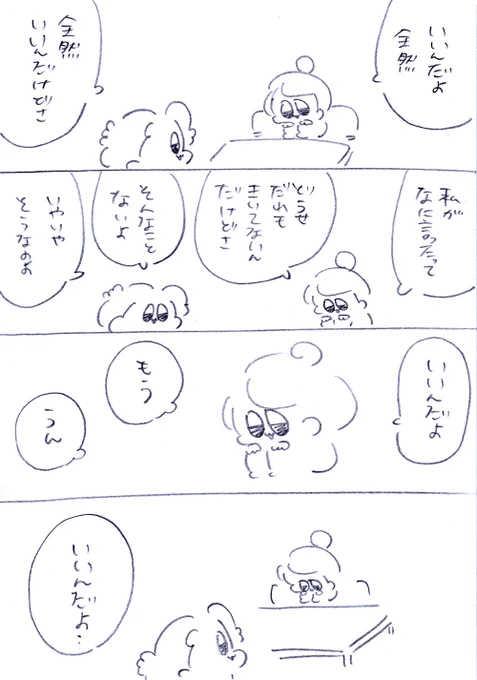 いいんだよ
全然
全然
いいんだけどさ
私が
なに言ったって
どうせ
だれも
きいてないん
だけどさ
そんなこと
ないよ
いやいや
そうなのよ
いいんだよ
もう
うん
いいんだよ…